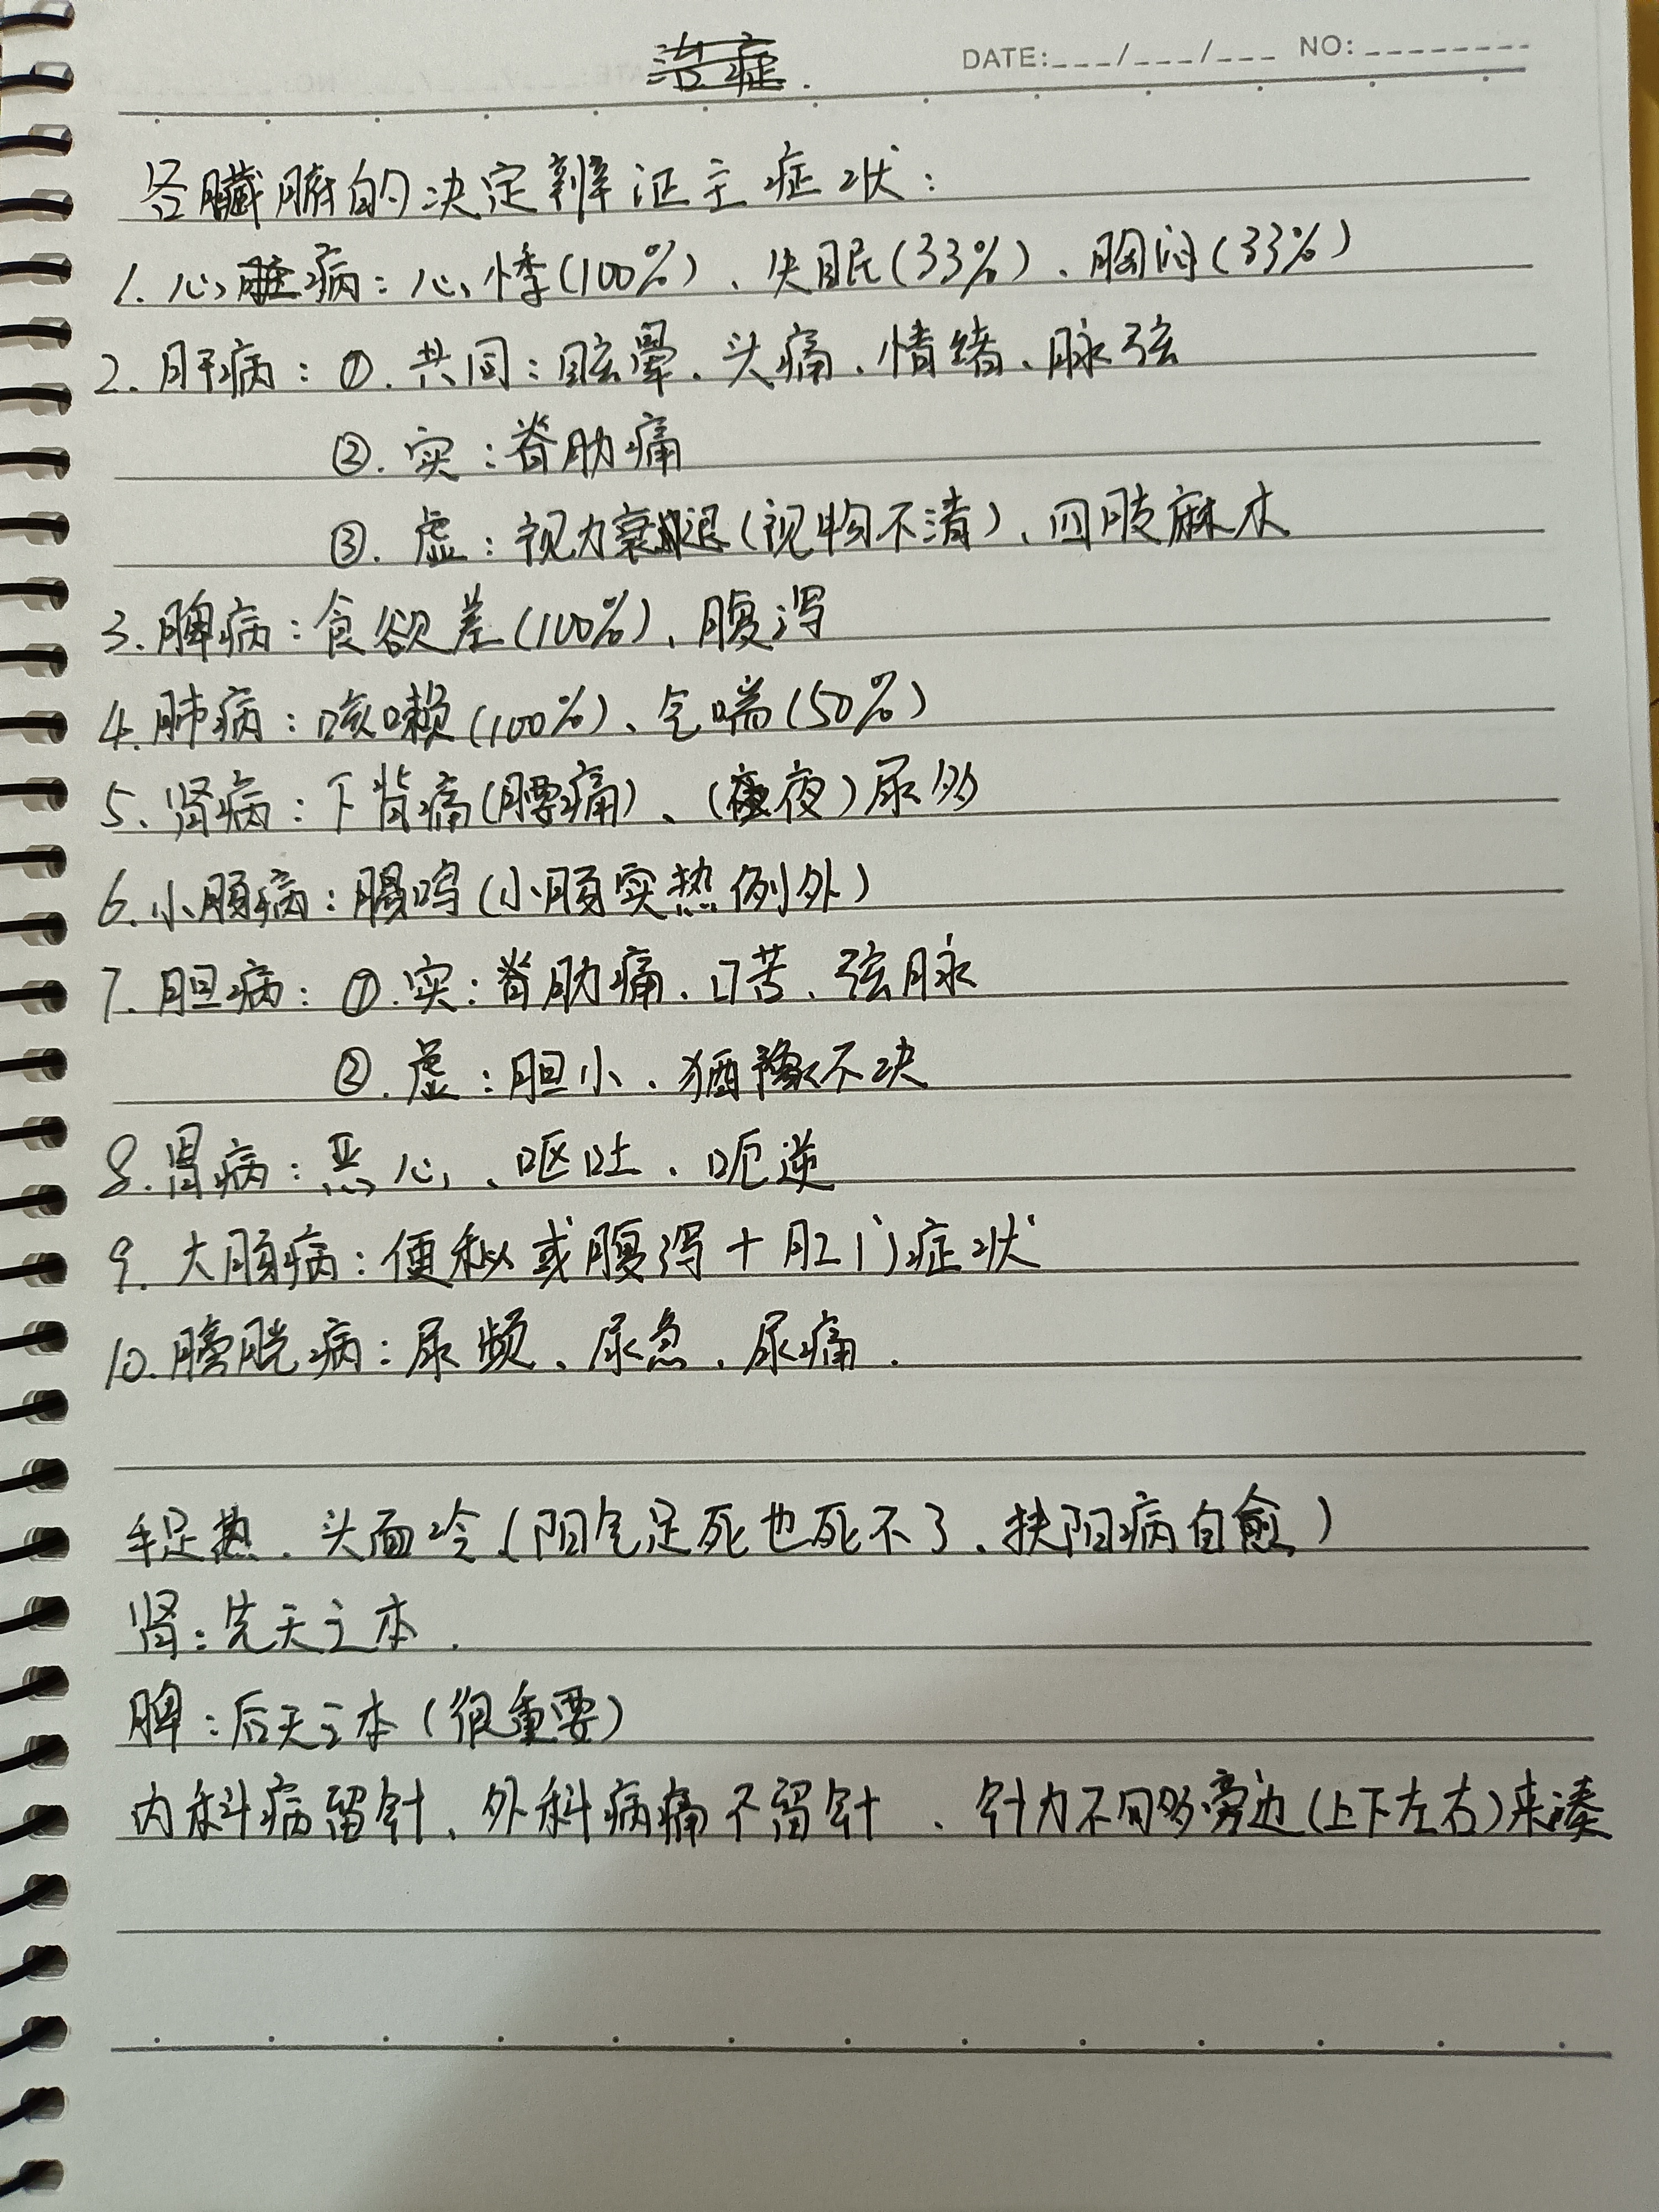 DATE:___/___/___ NO:________
各臟腑的决定辨证主症状：
1. 心病：心悸(100%)、失眠(33%)、胸闷(33%)
2. 肝病：①. 共同：眩晕、头痛、情绪、脉弦
②. 实：脊肋痛
③. 虚：视力衰退(视物不清)、四肢麻木
3. 脾病：食欲差(100%)、腹泻
4. 肺病：咳嗽(100%)、气喘(50%)
5. 肾病：下背痛(腰痛)、(夜)尿多
6. 小肠病：腸鸣(小肠实热例外)
7. 胆病：①. 实：脊肋痛、口苦、弦脉
②. 虚：胆小、犹豫不决
8. 胃病：恶心、呕吐、呃逆
9. 大肠病：便秘或腹泻+肛门症状
10. 膀胱病：尿频、尿急、尿痛.
手足热、头面冷(阳气足死也死不了、扶阳病自愈)
肾：先天之本.
脾：后天之本(很重要)
内科病留针、外科病痛不留针、针力不够旁边(上下左右)来凑